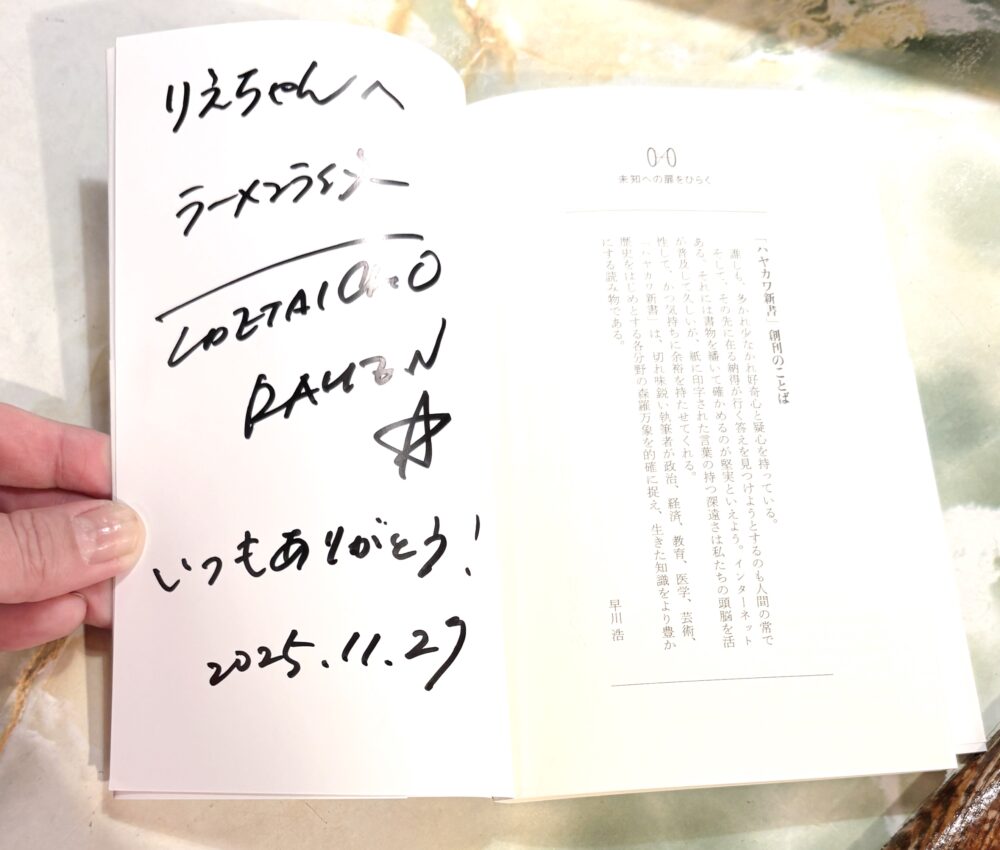 りえちゃんへ
ラーメンライター
RAMEN
いつもありがとう!
2025.11.27
0-0
未知への扉をひらく
「ハヤカワ新書」創刊のことば
誰しも、多かれ少なかれ好奇心と疑心を持っている。
そして、その先に在る納得が行く答えを見つけようとするのも人間の常で
ある。それには書物を繙いて確かめるのが堅実といえよう。インターネット
が普及して久しいが、紙に印字された言葉の持つ深遠さは私たちの頭脳を活
性して、かつ気持ちに余裕を持たせてくれる。
「ハヤカワ新書」は、切れ味鋭い執筆者が政治、経済、教育、医学、芸術、
歴史をはじめとする各分野の森羅万象を的確に捉え、生きた知識をより豊か
にする読み物である。
早川 浩